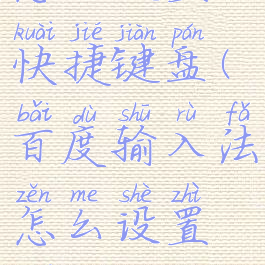 kuài jié jiàn pán
快捷键盘(
bǎi dù shū rù fǎ
百度输入法
zěn me shè zhì
怎么设置